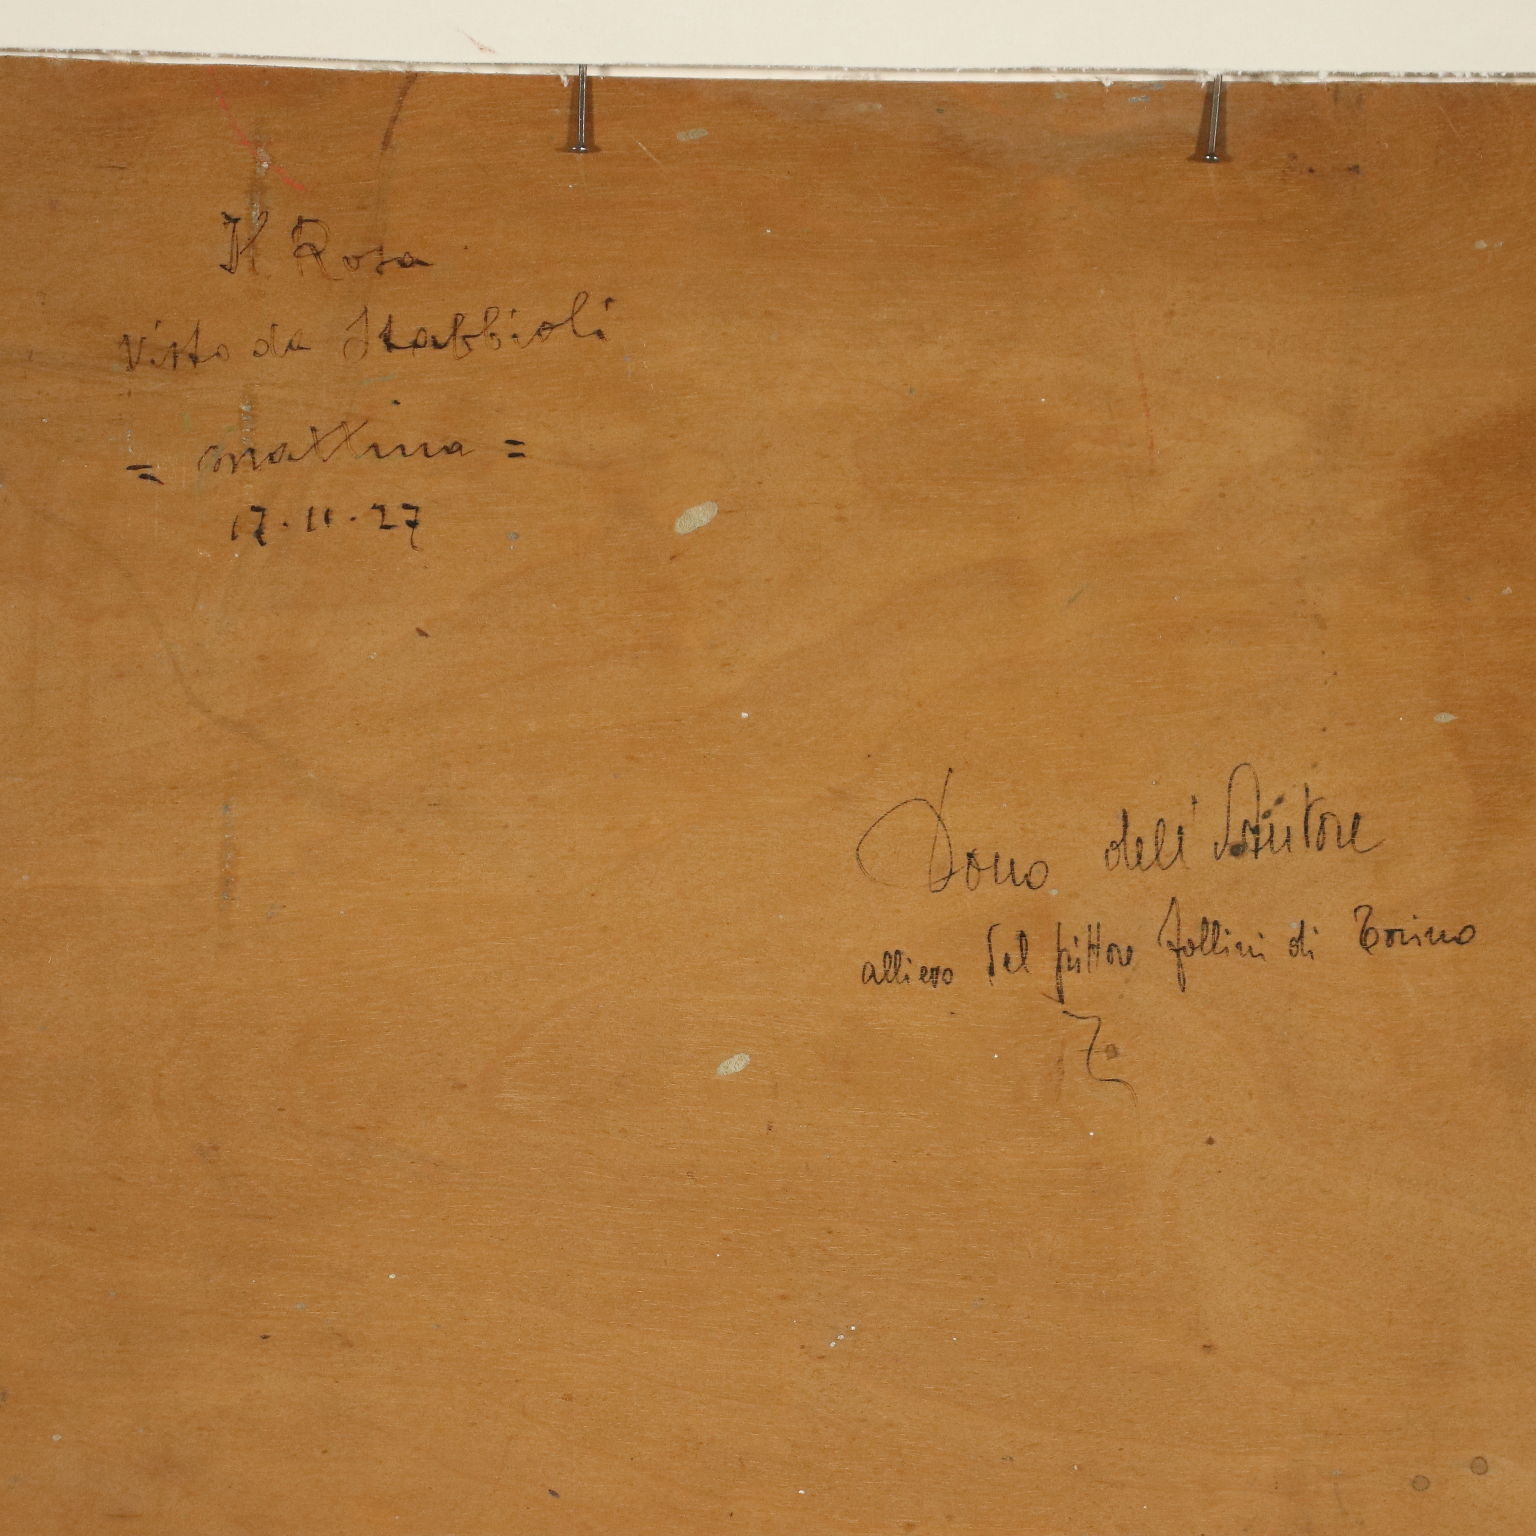 Il Rosa
visto da Stabbioli
= mattina =
17.11.27
Dono dell'Autore
allievo del pittore Follini di Torino